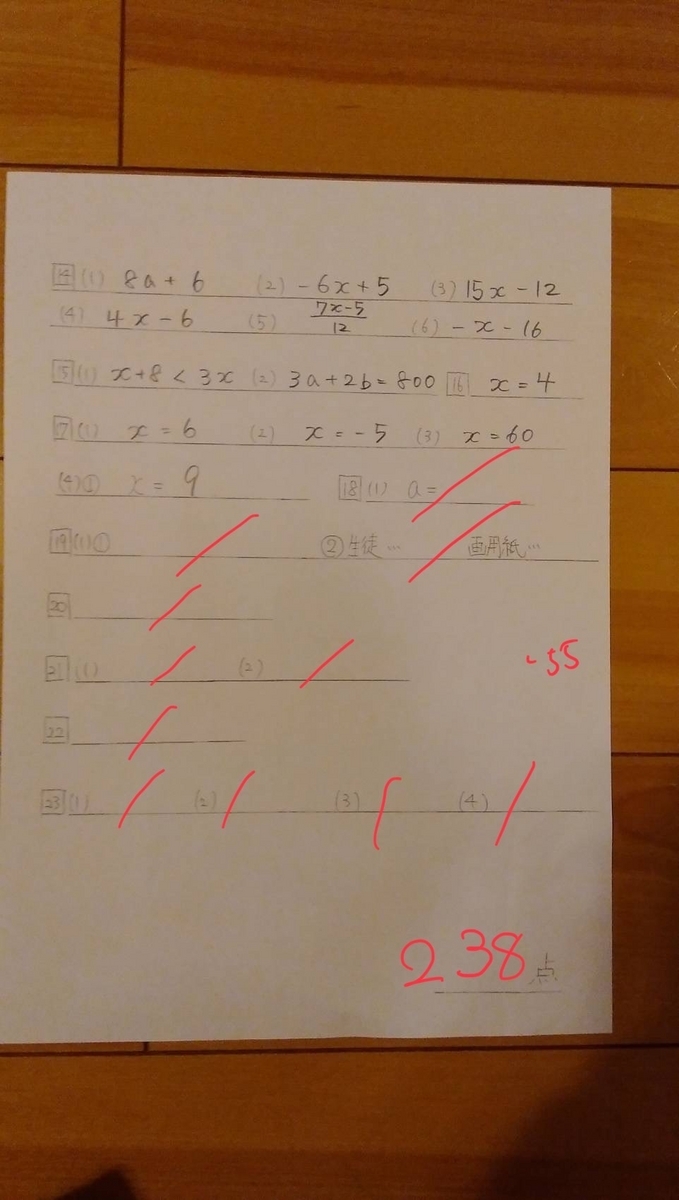 14 (1) 8a + 6 (2) -6x + 5 (3) 15x - 12
(4) 4x - 6 (5) 7x-5/12 (6) -x - 16
15 (1) x+8 < 3x (2) 3a+2b=800 16 x=4
17 (1) x = 6 (2) x = -5 (3) x=60
(4)① x = 9 18 (1) a=
19 (1)① ②生徒… 画用紙…
20
21 (1) (2)
-55
22
23 (1) (2) (3) (4)
238点